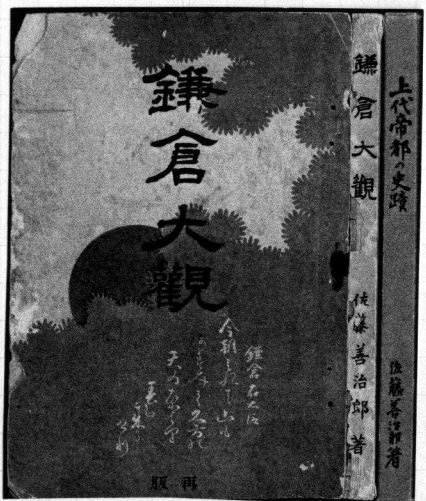 鎌倉大觀
鎌倉右大臣
再版
鎌倉大觀
佐藤善治郎著
上代帝都の史蹟
佐藤善治郎著